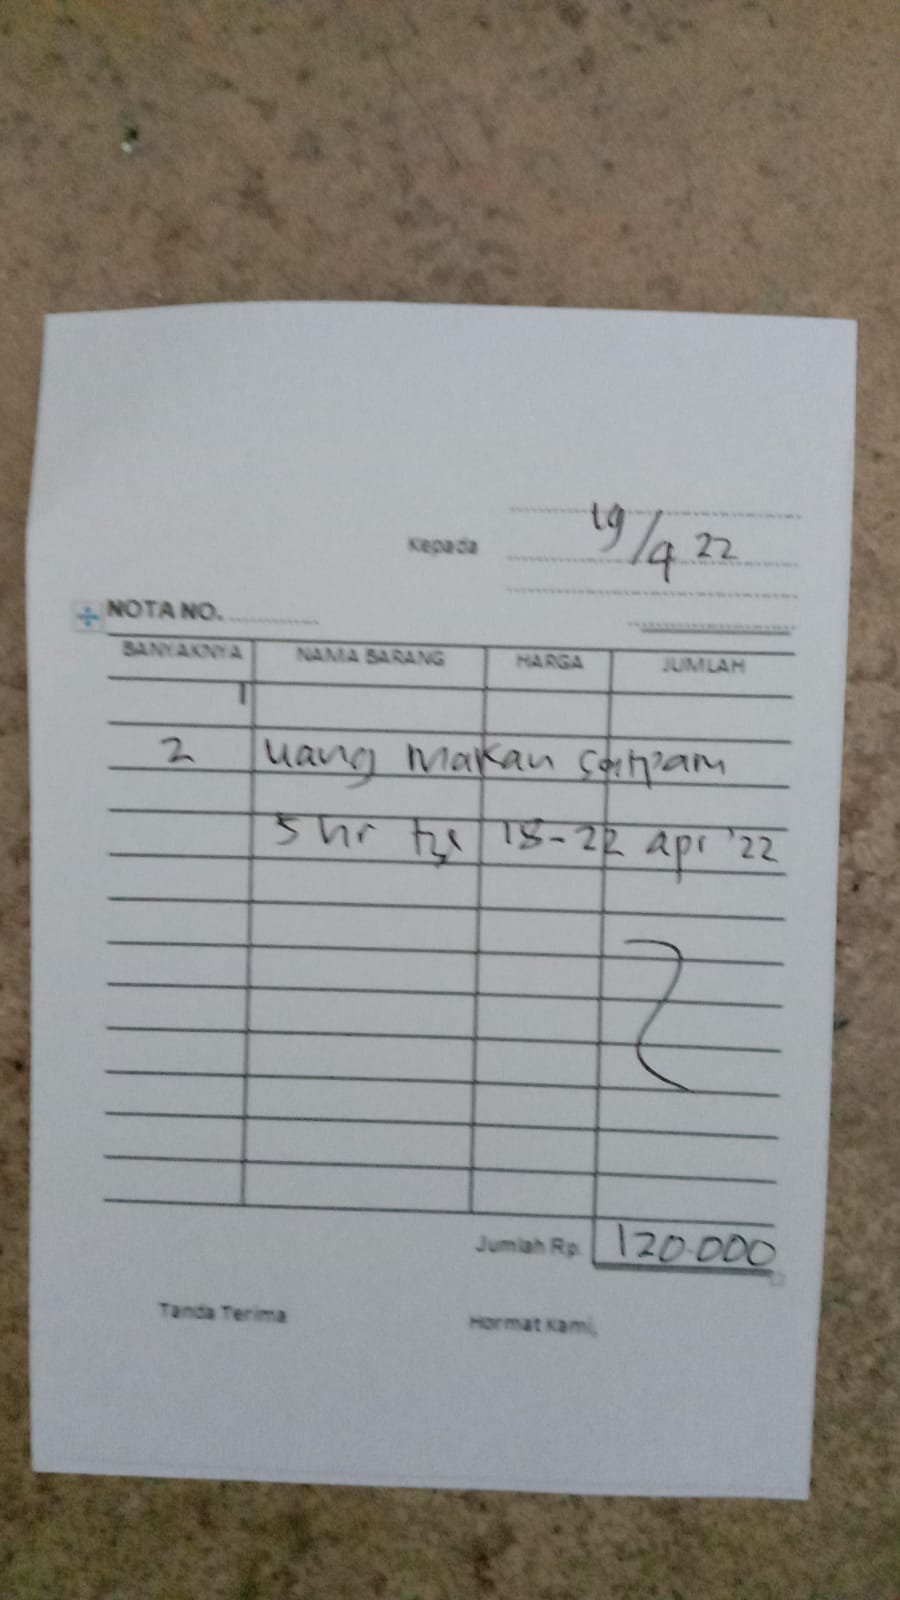 19/4 22
Kepada
NOTA NO.
BANYAKNYA NAMA BARANG HARGA JUMLAH
2 uang makan satpam
5 hr tgl 18-22 apr '22
Jumlah Rp. 120.000
Tanda Terima Hormat Kami,